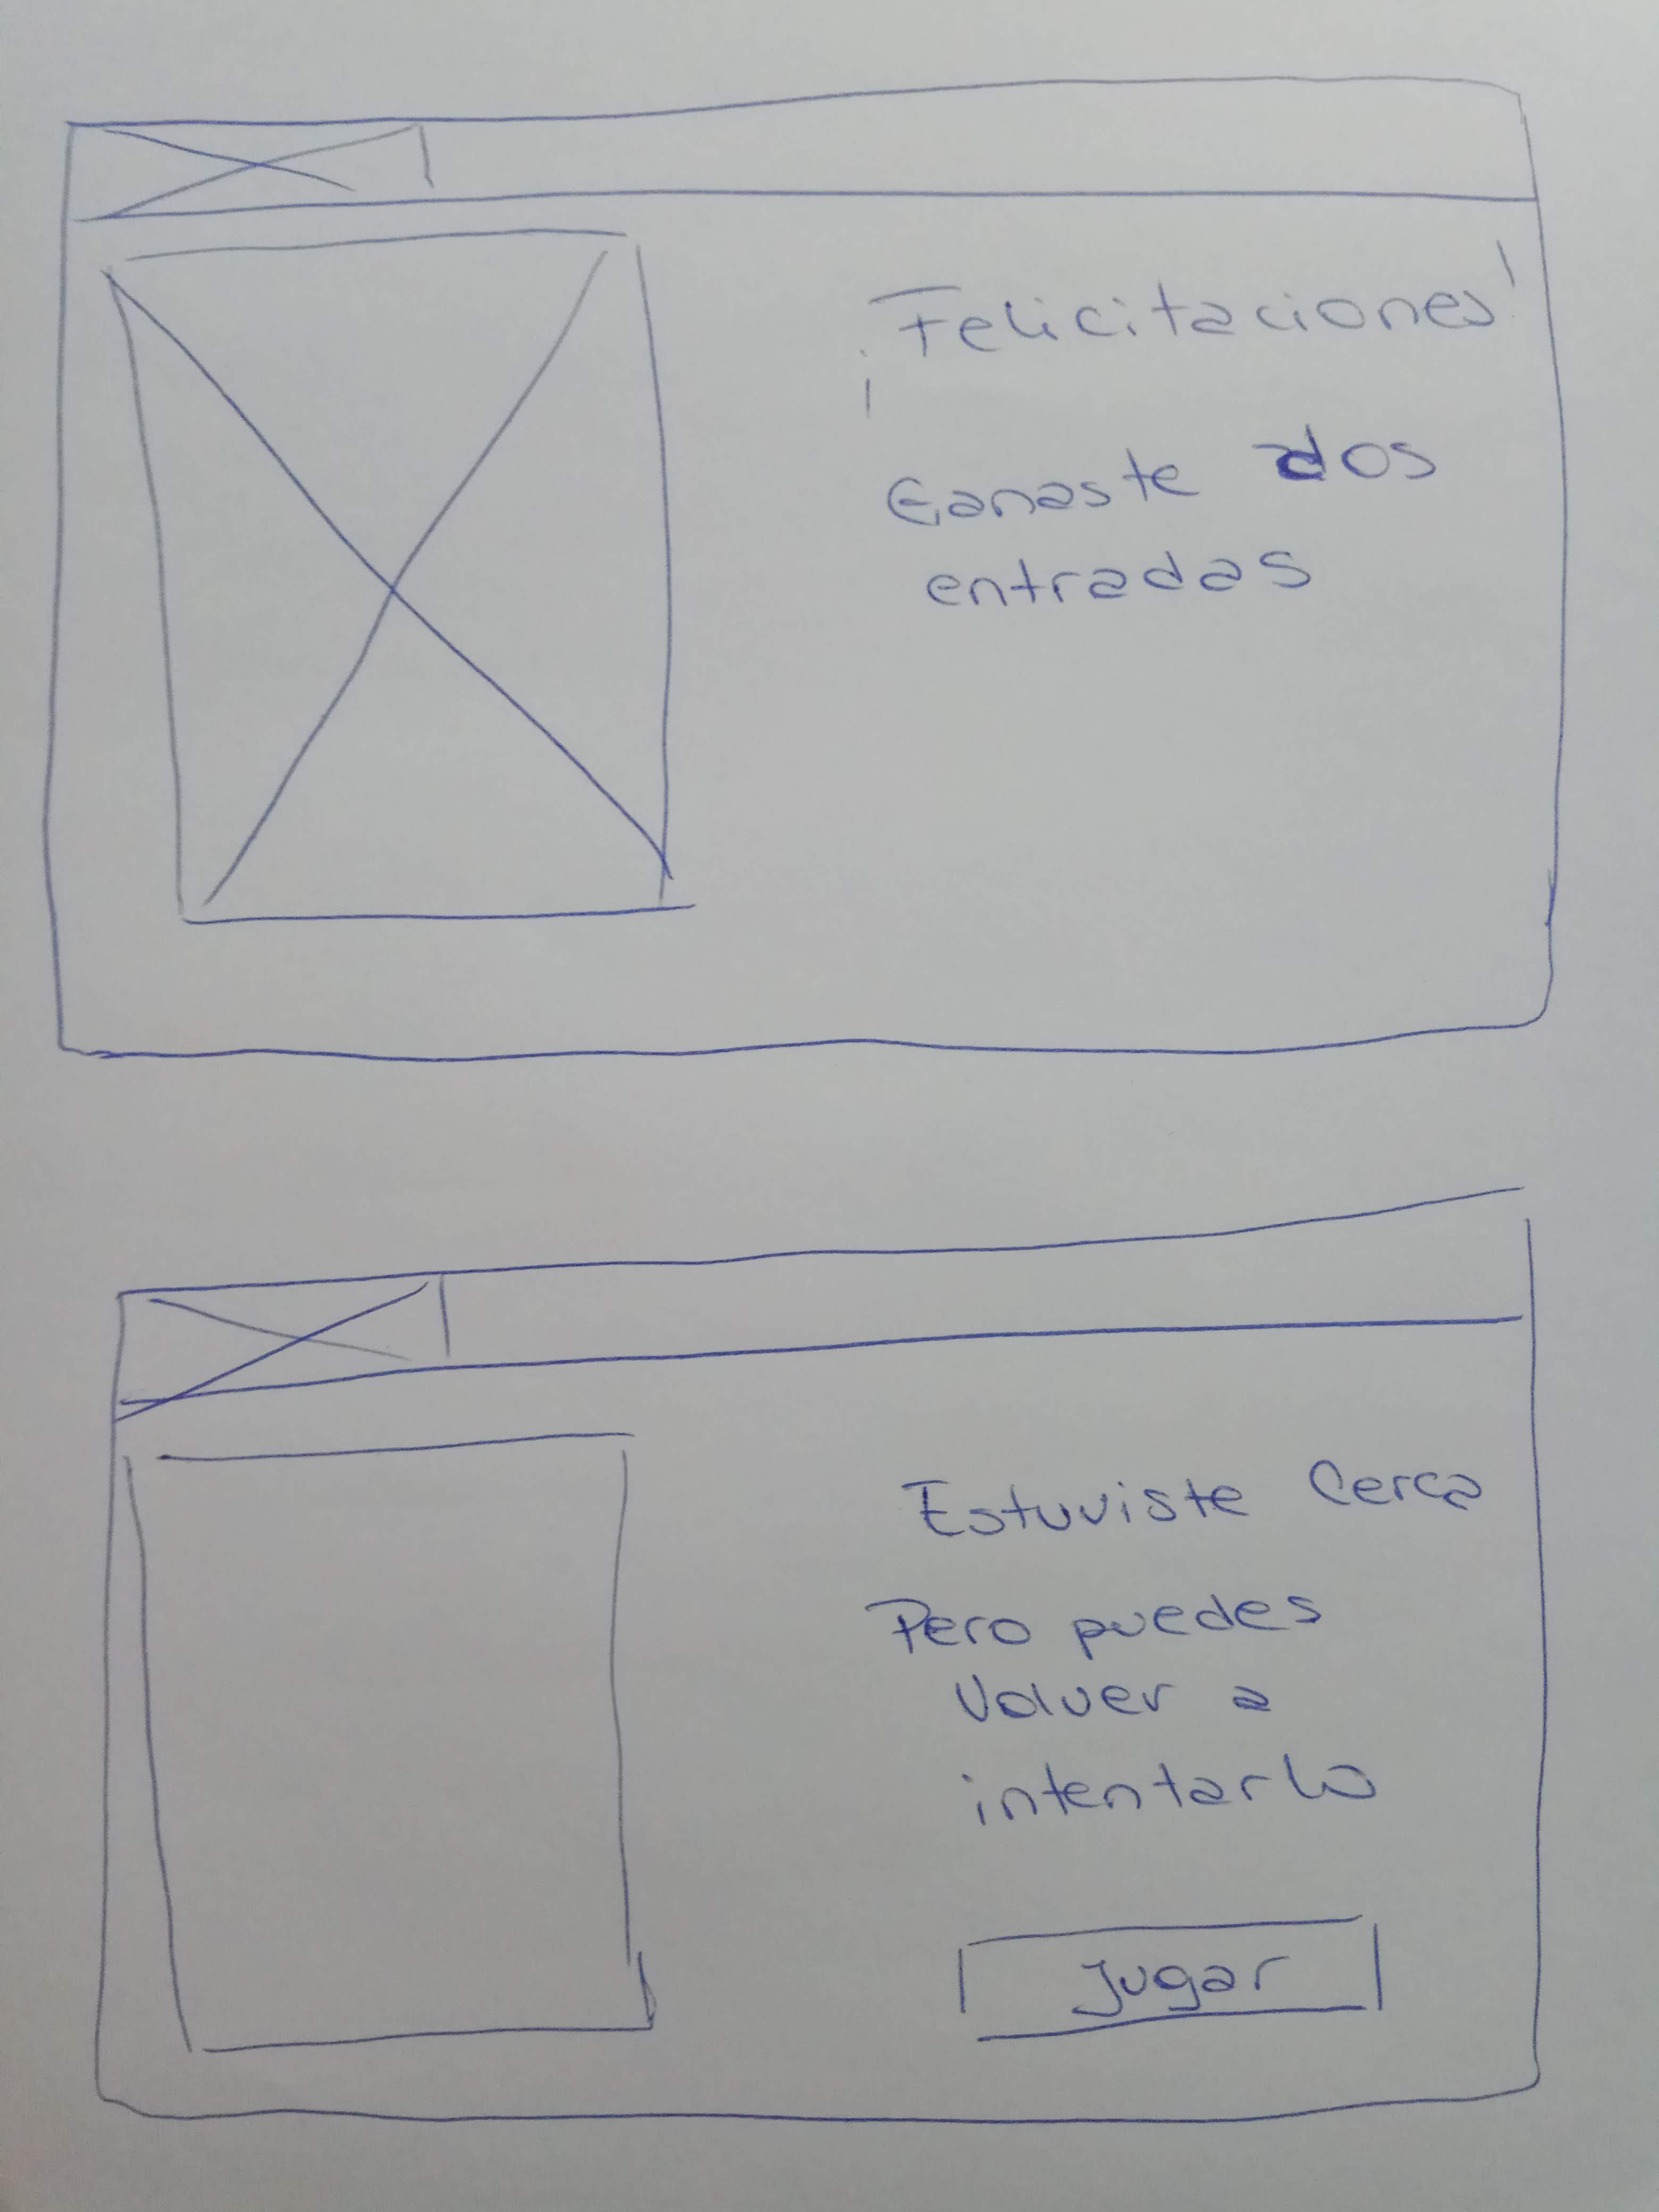 ¡Felicitaciones!
Ganaste dos
entradas
Estuviste Cerca
Pero puedes
Volver a
intentarlo
Jugar